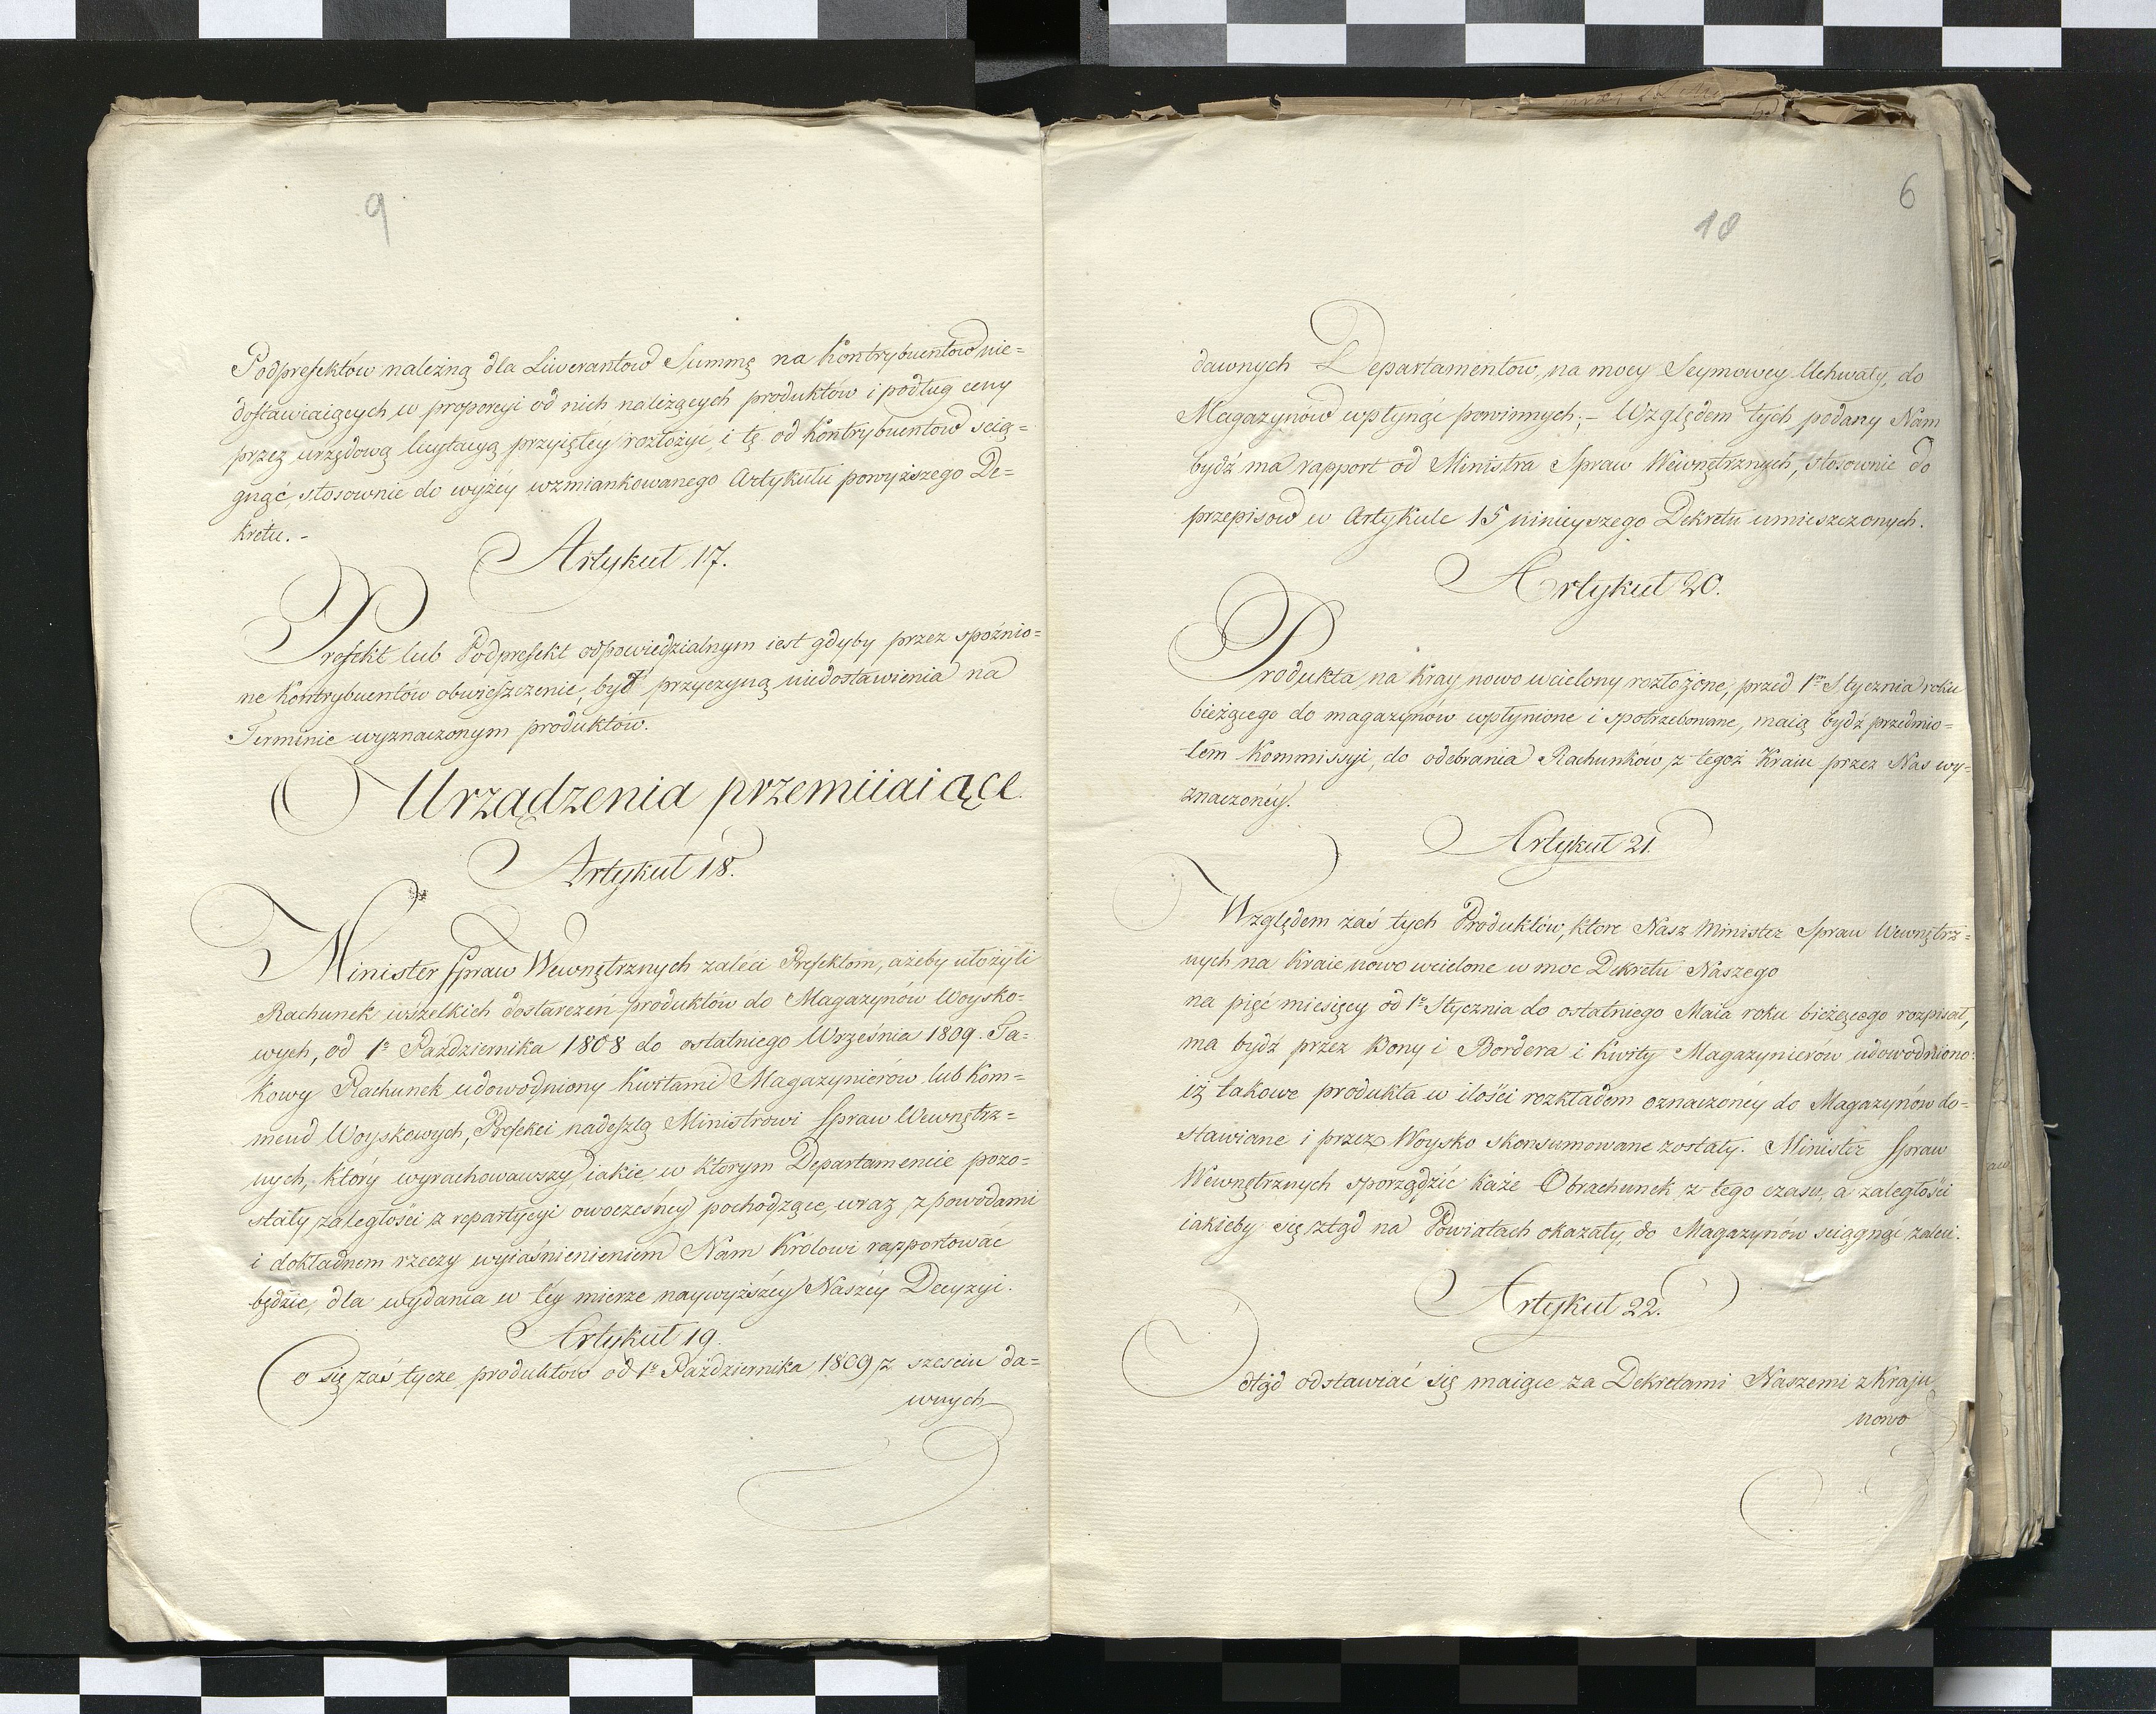 9
Podprefektów należną dla Liwerantow Summę na Kontrybuentow nie=
dostawiaiących, w proporcyi od nich należących produktów i podług ceny
przez urzędową licytacyą przyiętéy rozłożyć, i tę od Kontrybuentow scią=
gnąć, stosownie do wyżéy wzmiankowanego Artykułu powyższego De=
kretu. -
Artykuł 17.
Prefekt lub Podprefekt odpowiedzialnym iest gdyby przez spoźnio=
ne Kontrybuentów obwieszczenie, był przyczyną niedostawienia na
Terminie wyznaczonym produktów.
Urządzenia przemiiaiące.
Artykuł 18.
Minister Spraw Wewnętrznych zaleci Prefektom, ażeby ułożyli
Rachunek wszelkich dostarczeń produktów do Magazynów Woysko=
wych, od 1º Października 1808 do ostatniego Września 1809. Ta=
kowy Rachunek udowodniony Kwitami Magazynierów lub Kom=
mend Woyskowych, Prefekci nadeszlą Ministrowi Spraw Wewnętrz=
nych, który wyrachowawszy iakie w ktorym Departamencie pozo=
stały zaległości z repartycyi owoczesnéy pochodzące, wraz z powodami
i dokładnem rzeczy wyiaśnienieniem Nam Krolowi rapportować
będzie, dla wydania w tey mierze naywyższéy Naszéy Decyzyi.
Artykuł 19.
Co się zaś tycze produktów od 1º Października 1809 z szesciu da=
wnych
6
10
dawnych Departamentow, na mocy Seymowéy Uchwały, do
Magazynow wpłynąć powinnych; - Względem tych podany Nam
bydź ma rapport od Ministra Spraw Wewnętrznych, stosownie do
przepisow w Artykule 15 ninieyszego Dekretu umieszczonych.
Artykuł 20.
Produkta na Kray nowo wcielony rozłożone, przed 1m Stycznia roku
bieżącego do magazynów wpłynione i spotrzebowane, maią bydź przedmio=
tem Kommissyi, do odebrania Rachunków z tegoż Kraiu przez Nas wy=
znaczonéy.
Artykuł 21.
Względem zaś tych Produktów, ktore Nasz Minister Spraw Wewnętrz=
nych na Kraie nowo wcielone w moc Dekretu Naszego
na pięć miesięcy od 1º Stycznia do ostatniego Maia roku bieżącego rozpisał,
ma bydź przez Bony i Bordera i Kwity Magazynierów udowodniono:
iż takowe produkta w ilości rozkładem oznaczonéy do Magazynów do=
stawiane i przez Woysko skonsumowane zostały. Minister Spraw
Wewnętrznych sporządzić każe Obrachunek z tego czasu, a zaległości
iakieby się ztąd na Powiatach okazały, do Magazynów sciągnąć zaleci.
Artykuł 22.
Odtąd odstawiać się maiące za Dekretami Naszemi z Kraju
nowo